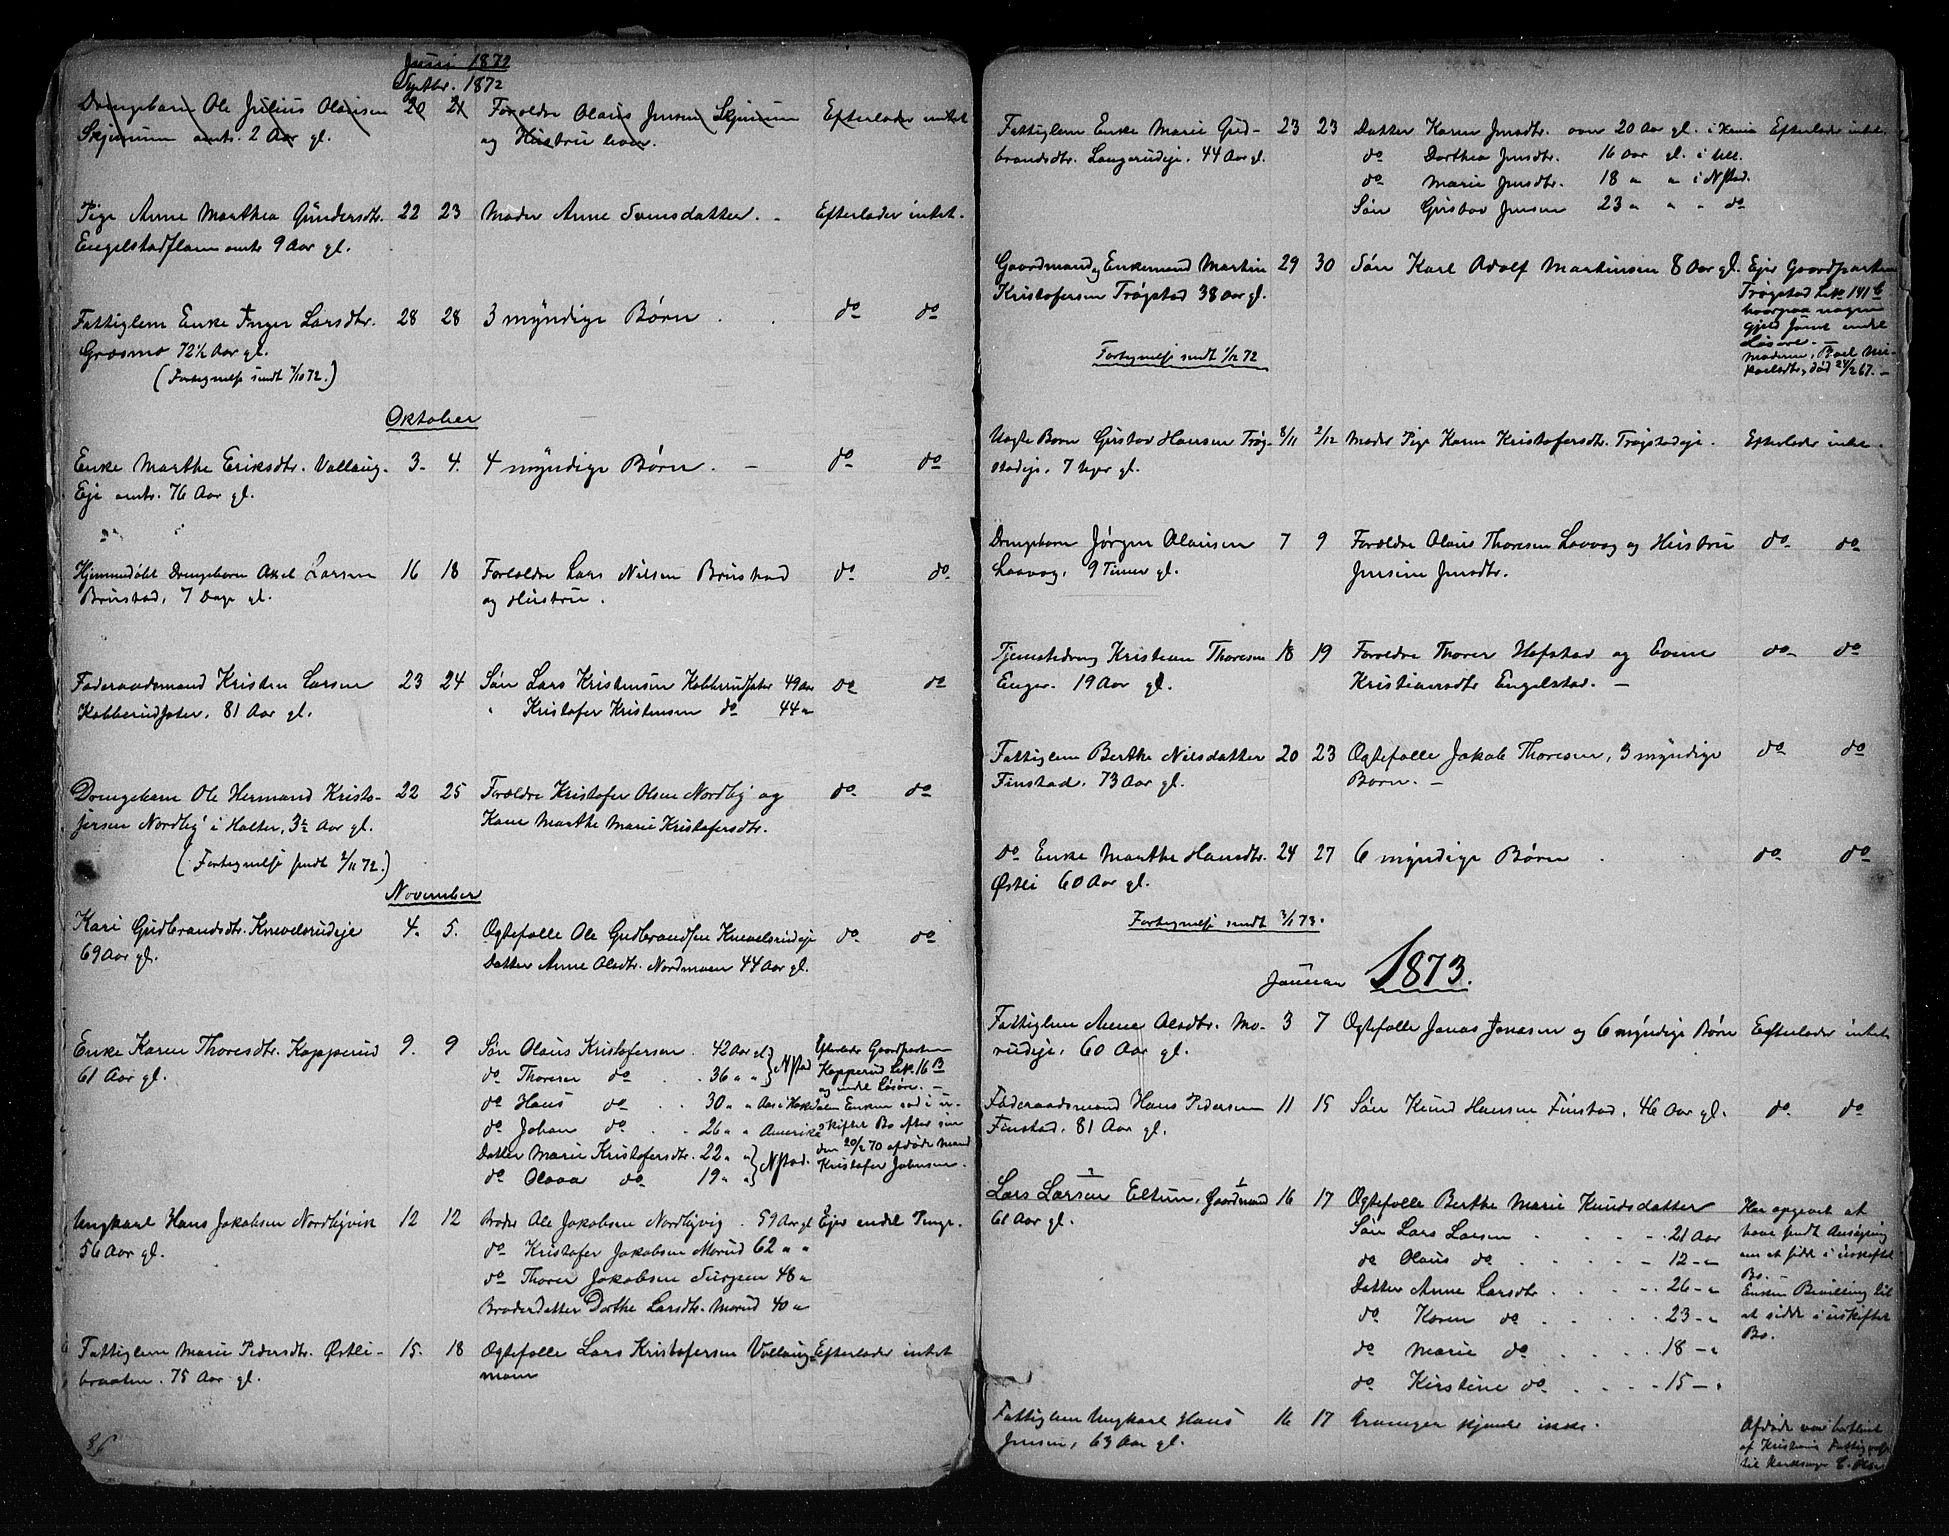 Juni 1872
Septbr. 1872
Drengebarn Ole Julius Olausen 20 21 Forældre Olaus Jensen Skjennum Efterlader intet
Skjennum amts. 2 Aar gl. og Hustru
Pige Anne Marthea Gundersdtr. 22 23 Moder Anne Svensdatter. - Efterlader intet.
Engelstadflam amts 9 Aar gl.
Fattiglem Enke Inger Larsdtr. 28 28 3 myndige Børn . . do do
Grasmo 72½ Aar gl.
(Fortegnelse sendt 7/10 72.)
Oktober
Enke Marthe Eriksdtr. Vollaug- 3. 4. 4 myndige Børn. - do do
Eje amts. 76 Aar gl.
Hjemmedøbt Drengebarn Axel Larsen 16 18 Forældre Lars Nilsen Brustad do do
Brustad, 7 Dage gl. og Hustru.
Føderaadsmand Kristen Larsen 23 24 Søn Lars Kristensen Kobberudsater 49 Aar do do
Kobberudsater. 81 Aar gl. " Kristofer Kristensen do 44 "
Drengebarn Ole Hermand Kristo- 22 25 Forældre Kristofer Olsen Nordby og do do
fersen Nordby i Holter, 3½ Aar gl. Kone Marthe Marie Kristofersdtr.
(Fortegnelse sendt 2/11 72.)
November
Kari Gudbrandsdtr. Knevelsrudeje 4. 5. Ogtefolle Ole Gudbrandsen Knevelsrudeje do do
69 Aar gl. Datter Anne Olsdtr. Nordmoen 44 Aar gl.
Enke Karen Thoresdtr. Kopperud 9. 9 Søn Olaus Kristofersen. 42 Aar gl. Efterlader Gaardparten
61 Aar gl. do Thorer do . . 36 " " } Nstad Kopperud Lnr. 16 B
og endel Løsøre. -
do Hans do . . 30 " " Aas i Hakedalen Enken sad i u-
do Johan do . . 26 " " Amerika skiftet Bo efter sin
Datter Marie Kristofersdtr. 22 " " } Nstad. den 20/2 70 afdøde Mand
do Olava do 19 " " Kristofer Johnsen.
Ungkarl Hans Jakobsen Nordbyvik 12 12 Broder Ole Jakobsen Nordbyvig . 59 Aar gl Ejer endel Penge.
56 Aar gl. do Kristofer Jakobsen Morud 62 " "
do Thorer Jakobsen 48 "
Broderdatter Dorthe Larsdtr. Morud 40 "
Fattiglem Marie Pedersdtr. Østli- 15. 18 Ogtefolle Lars Kristofersen Vollaug- Efterlader intet
braaten. 75 Aar gl. moen
86
Fattiglem Enke Marie Gud- 23 23 Datter Karen Jensdtr. over 20 Aar gl. i Xania Efterlader intet.
brandsdtr. Langerudeje. 44 Aar gl. do Dorthea Jensdtr. 16 Aar gl. i Ull.
do Marie Jensdtr. 18 " " i Nstad.
Søn Gustav Jensen 23 " " " do
Gaardmand og Enkemand Martin 29 30 Søn Karl Adolf Martinsen 8 Aar gl. Ejer Gaardparten
Kristofersen Trøgstad 38 Aar gl. Trøgstad Lnr 141 b
hvorpaa nogen
Gjeld samt endel
Løsøre. -
Fortegnelse sendt 1/12 72 Moderen, Boel Mi-
kaelsdtr, død 24/2 67. -
Uægte Barn Gustav Hansen Trøg- 8/11 2/12 Moder Pige Karen Kristofersdtr. Trøgstadeje. Efterlader intet.
stadeje, 7 Uger gl.
Drengebarn Jørgen Olausen 7 9 Forældre Olaus Thoresen Laavag og Hustru do. do
Laavag. 9 Timer gl. Jensine Jensdtr.
Tjenestedreng Kristian Thoresen 18 19 Forældre Thorer Hofstad og Evine do do
Enger. 19 Aar gl. Kristiansdtr Engelstad. -
Fattiglem Berthe Nilsdatter 20 23 Ogtefolle Jakob Thoresen, 3 myndige do do
Finstad. 73 Aar gl. Børn. -
do Enke Marthe Hansdtr. 24 27 6 myndige Børn . . do do
Østli 60 Aar gl.
Fortegnelse sendt 3/1 73.
Januar 1873.
Fattiglem Anne Olsdtr. Mo- 3 7 Ogtefolle Jonas Jonasen og 6 myndige Børn Efterlader intet
rudeje, 60 Aar gl.
Føderaadsmand Hans Pedersen 11 15 Søn Knud Hansen Finstad, 46 Aar gl. do. do
Finstad. 81 Aar gl.
Lars Larsen Eltun, Gaardmand 16 17 Ogtefolle Berthe Marie Knudsdatter Har opgivet at
61 Aar gl. Søn Lars Larsen . . . . 21 Aar have sendt Ansøgning
do Olaus do . . . . 12 - " om at sidde i uskiftet
Bo. -
Datter Anne Larsdtr . . . 26 - " Enken Bevilling til
do Karen do . . . . 23 - " at sidde i uskiftet
Bo.
do Marie do . . . . 18 - "
do Kirstine do . . . . 15 - "
Fattiglem Ungkarl Hans 16 17 Arvinger kjendes ikke.
Jensen, 63 Aar gl. Afdøde var
af Kristiania
til E. Olsen